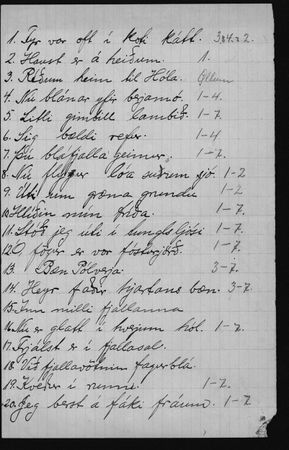 1. Fyr var oft í koti kátt. 3,4 1 2.
2. Haust er á heiðum. 1.
3. Ríðum heim til Hóla. Öllum
4. Nú blánar yfir berjamó. 1-4.
5. Litli gimbill lambið. 1-7.
6. Sig bældi refur. 1-4
7. Þú bláfjalla geimur. 1-7.
8. Nú flýgur lóa suðrum sjó. 1-2
9. Úti um græna grundu 1-2
10. Hlíðin mín fríða. 1-7.
11. Stóð jeg úti í tunglsljósi 1-7.
12. Ó, fögur er vor fósturjörð. 1-7.
13. Bæn Pólverja. 3-7.
14. Heyr faðir hjartans bæn. 3-7.
15. Inn milli fjallanna
16. Nú er glatt í hverjum hól. 1-7.
17. Frjálst er í fjallasal.
18. Við fjallavötnin fagurblá.
19. Kveður í runni. 1-7.
20. Jeg berst á fáki fráum. 1-7